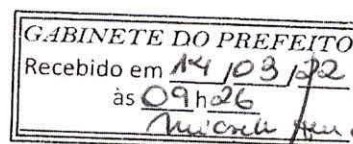 GABINETE DO PREFEITO
Recebido em 14/03/22
às 09h26